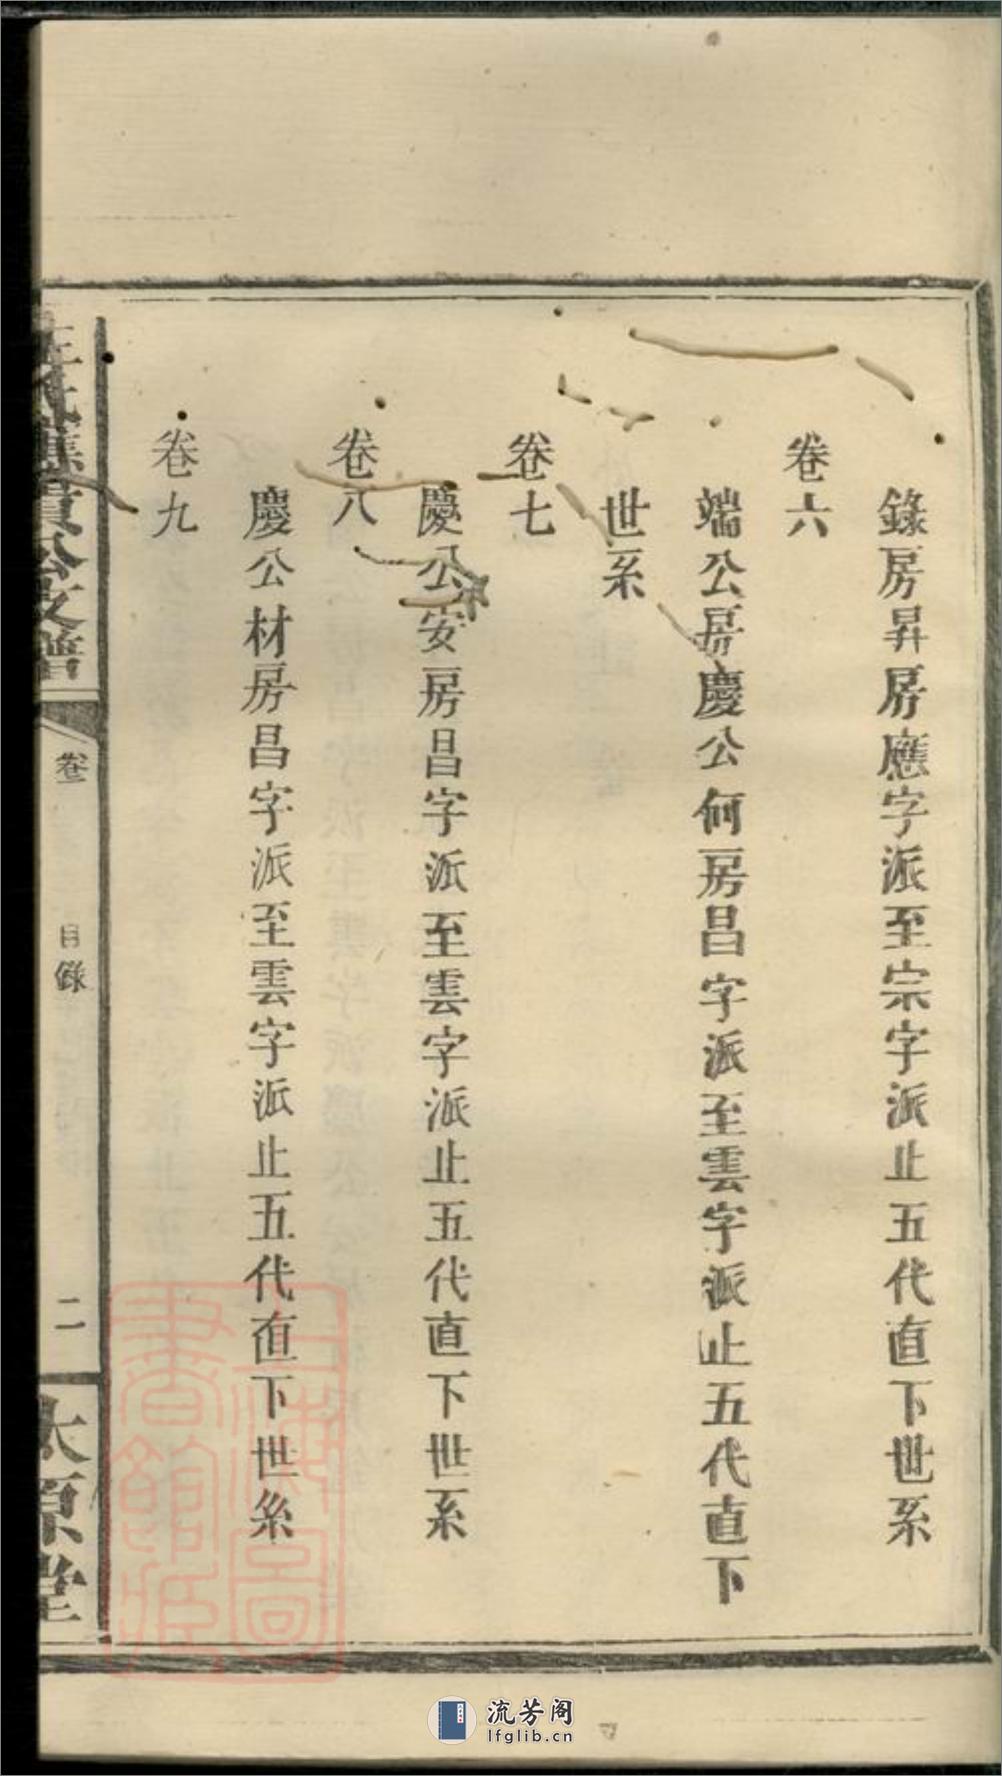 錄房昇房應字派至宗字派止五代直下世系
卷六
端公房慶公何房昌字派至雲字派止五代直下
世系
卷七
慶公安房昌字派至雲字派止五代直下世系
卷八
慶公材房昌字派至雲字派止五代直下世系
卷九
公支譜
卷
目錄
二
太原堂
上海圖書館藏
流芳阁
lfglib.cn